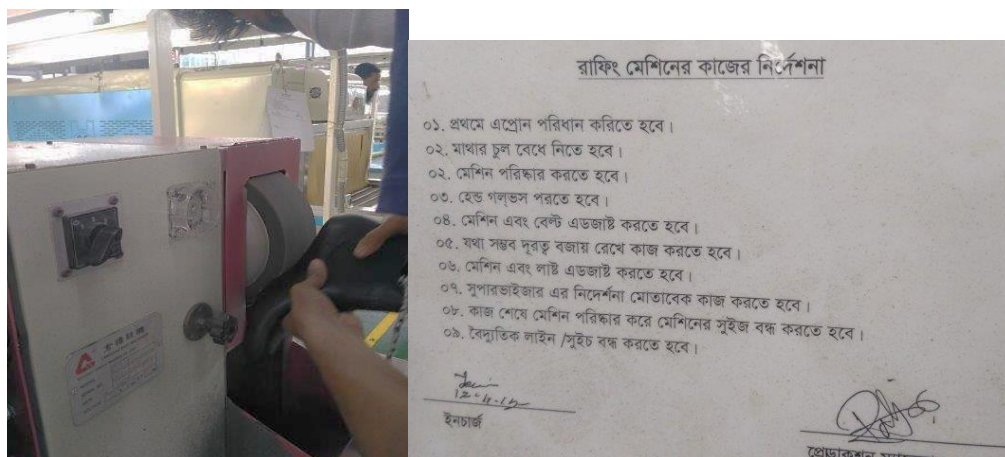 রাফিং মেশিনের কাজের নির্দেশনা
০১. প্রথমে এপ্রোন পরিধান করিতে হবে।
০২. মাথার চুল বেধে নিতে হবে।
০২. মেশিন পরিষ্কার করতে হবে।
০৩. হেন্ড গল্‌ভস পরতে হবে।
০৪. মেশিন এবং বেল্ট এডজাষ্ট করতে হবে।
০৫. যথা সম্ভব দূরত্ব বজায় রেখে কাজ করতে হবে।
০৬. মেশিন এবং লাষ্ট এডজাষ্ট করতে হবে।
০৭. সুপারভাইজার এর নিদের্শনা মোতাবেক কাজ করতে হবে।
০৮. কাজ শেষে মেশিন পরিষ্কার করে মেশিনের সুইজ বন্ধ করতে হবে।
০৯. বৈদ্যুতিক লাইন /সুইচ বন্ধ করতে হবে।
ইনচার্জ
প্রোডাকশন